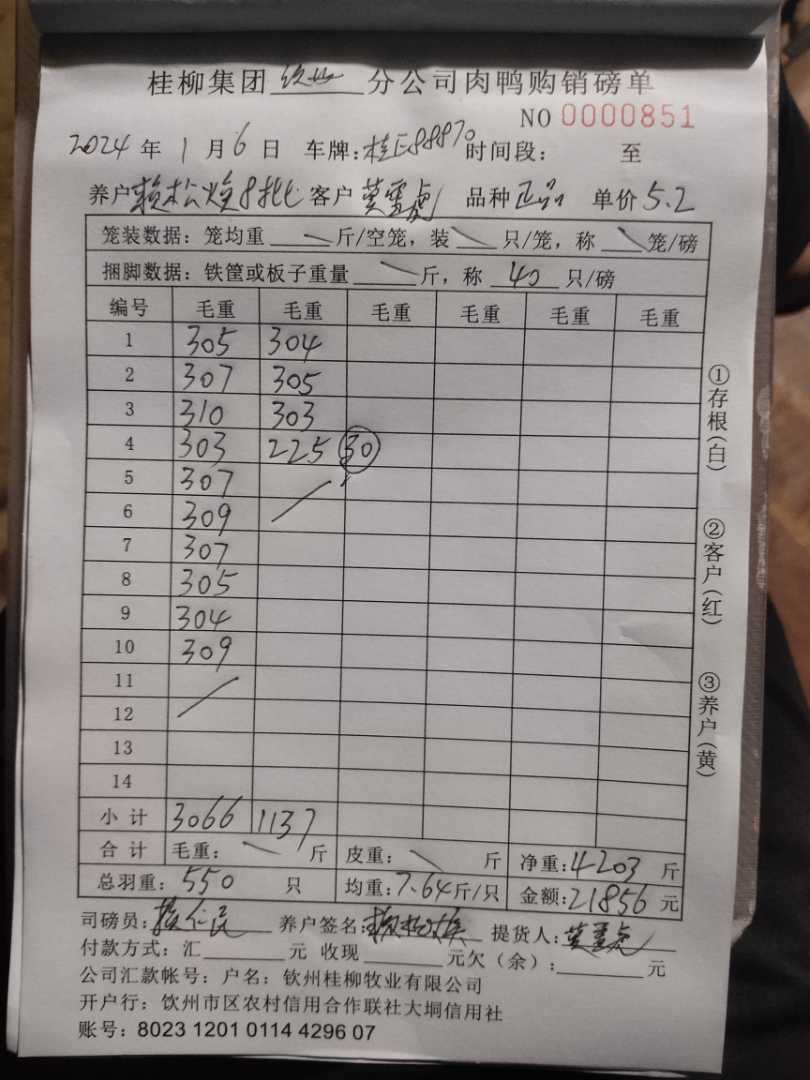 桂柳集团 钦州 分公司肉鸭购销磅单
NO 0000851
2024 年 1 月 6 日 车牌:桂E88870 时间段: 至
养户 赖松焕8批 客户 莫雪虎 品种 正品 单价 5.2
笼装数据:笼均重 斤/空笼,装 只/笼,称 笼/磅
捆脚数据:铁筐或板子重量 斤,称 40 只/磅
编号 毛重 毛重 毛重 毛重 毛重 毛重
1 305 304
2 307 305
3 310 303
4 303 225 30
5 307
6 309
7 307
8 305
9 304
10 309
11
12
13
14
小计 3066 1137
合计 毛重: 斤 皮重: 斤 净重:4203 斤
总羽重:550 只 均重:7.64斤/只 金额:21856 元
司磅员: 养户签名:赖松焕 提货人:莫雪虎
付款方式:汇 元 收现 元欠(余): 元
公司汇款帐号:户名:钦州桂柳牧业有限公司
开户行:饮州市区农村信用合作联社大垌信用社
账号:8023 1201 0114 4296 07
①存根(白)
②客户(红)
③养户(黄)